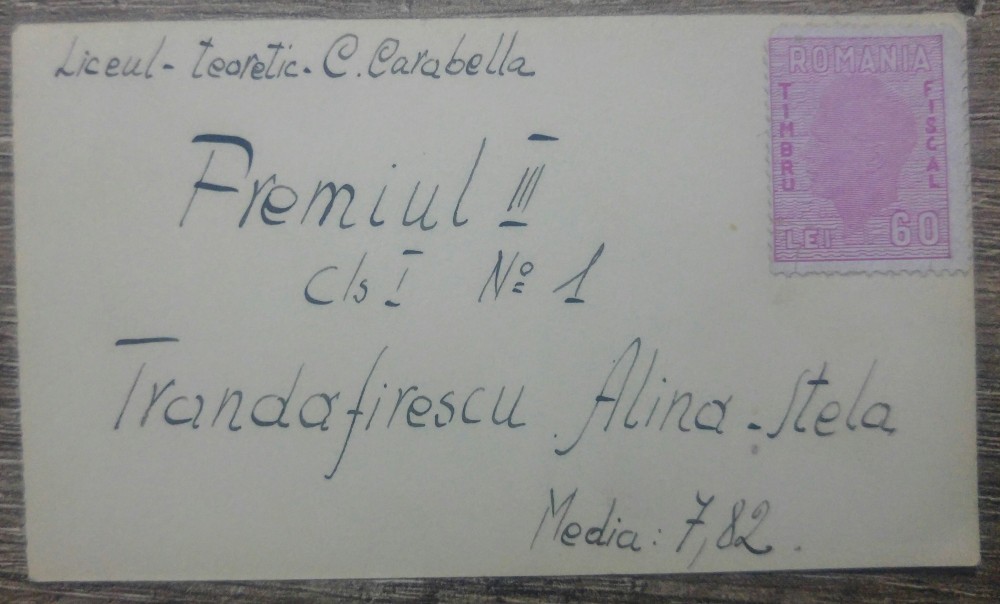 Liceul - teoretic. C. Carabella
ROMANIA
TIMBRU
FISCAL
LEI 60
Premiul III
cls I Nº 1
Trandafirescu Alina-Stela
Media: 7,82.